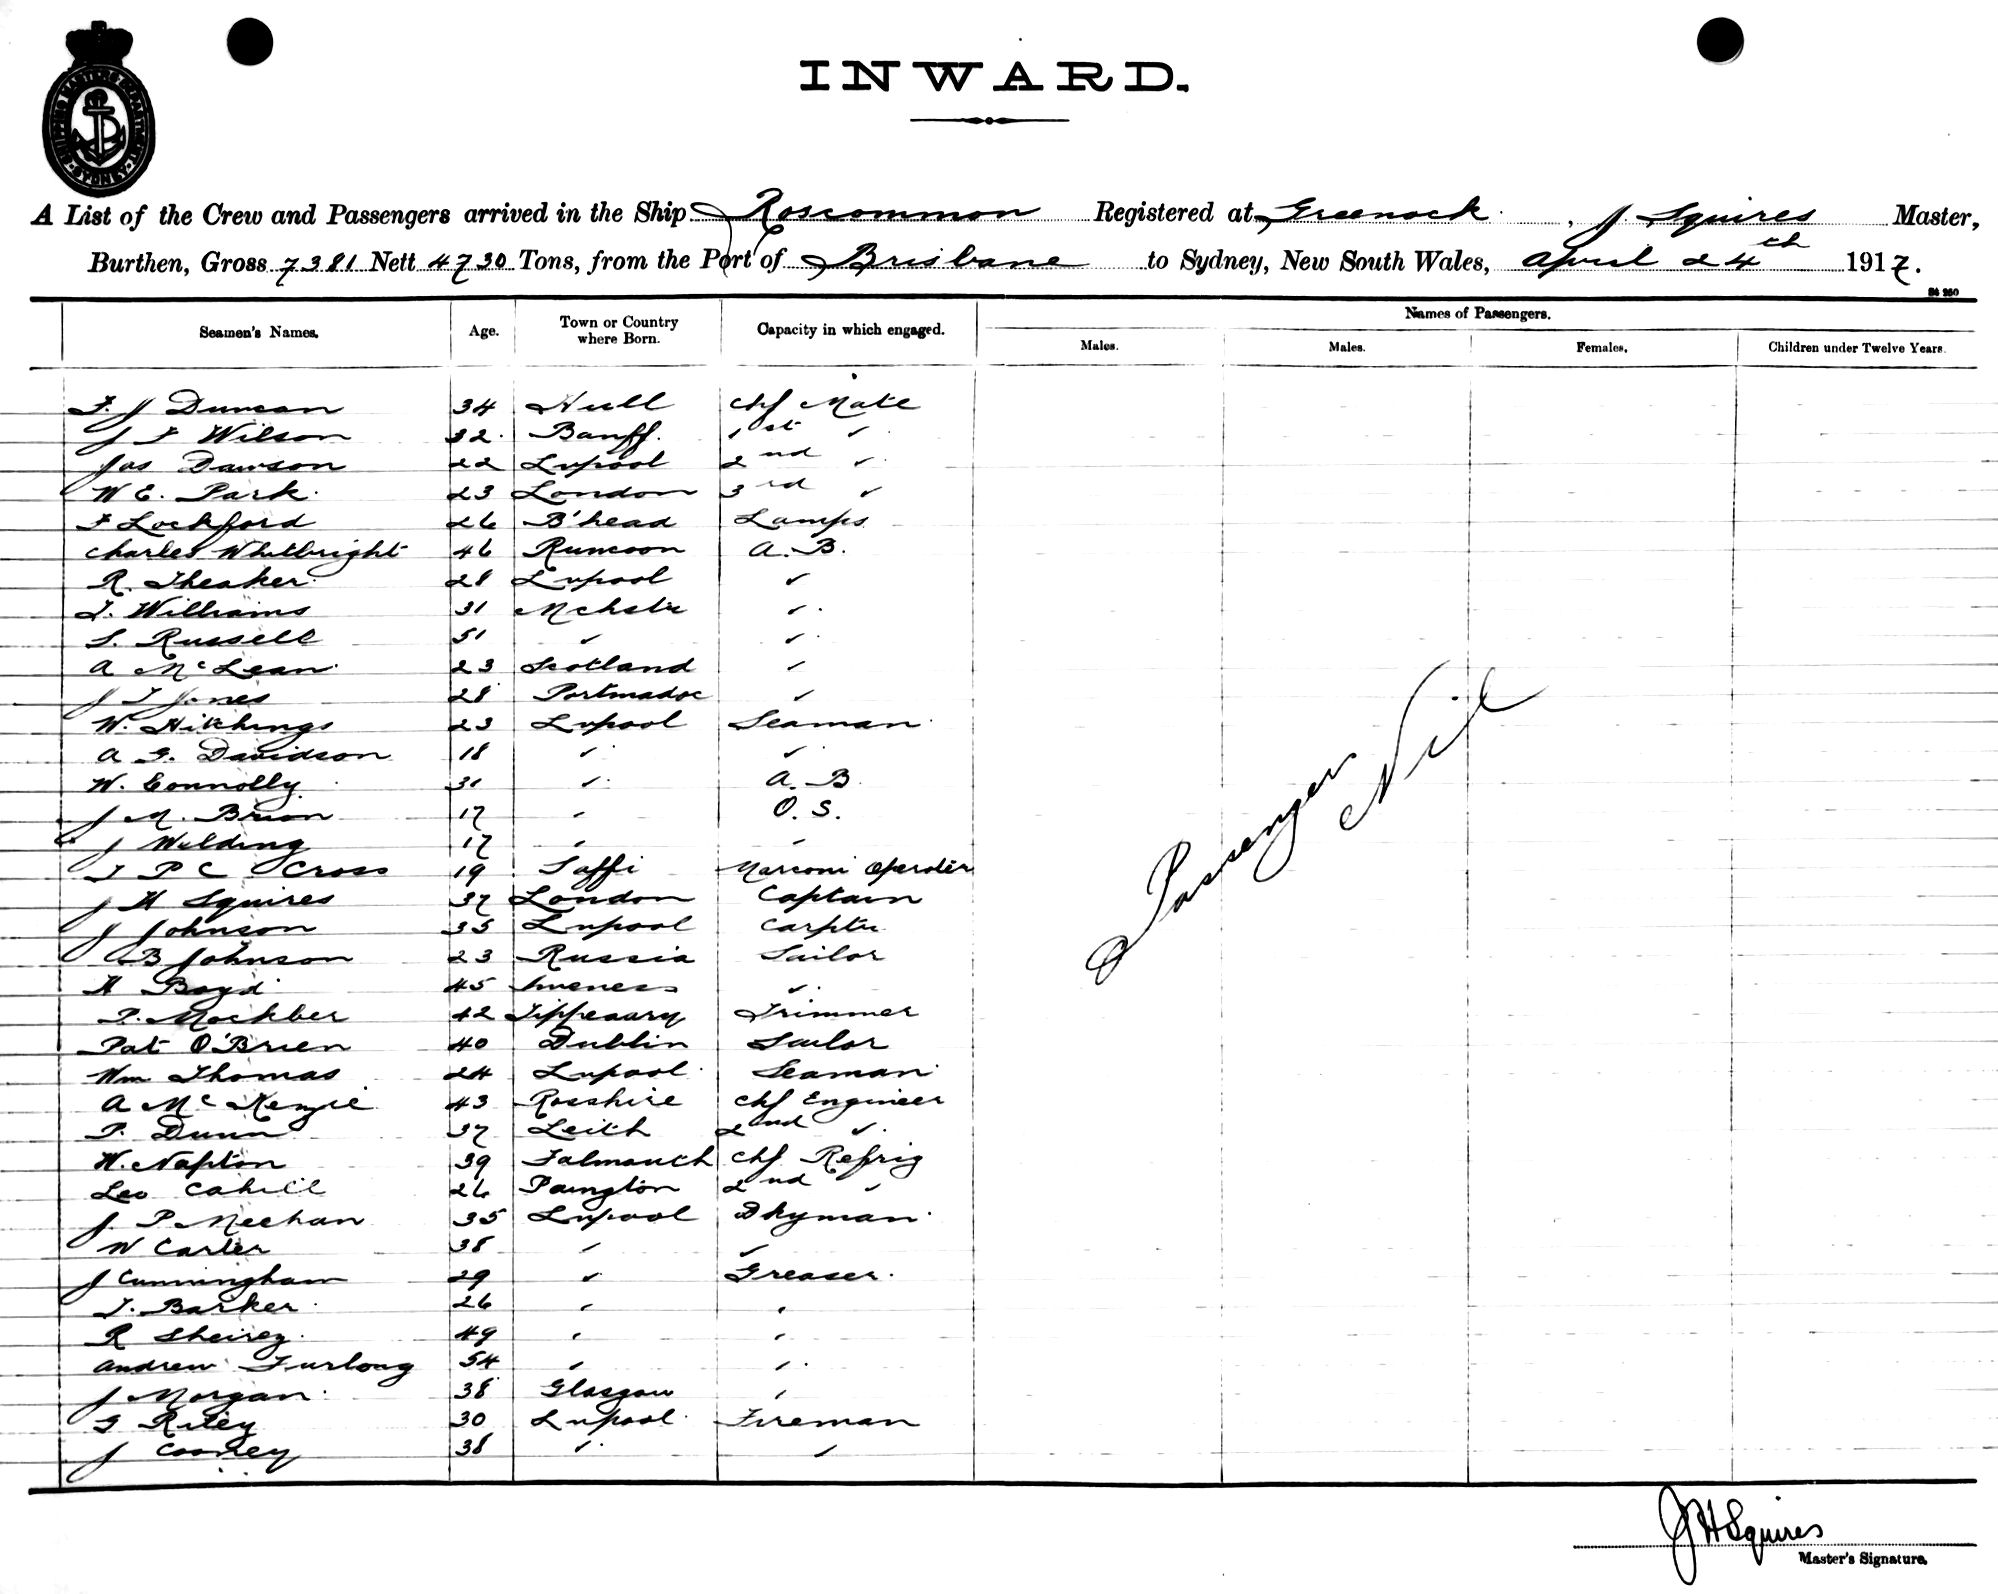 SHIPPING MASTERS DEPARTMENT SYDNEY
INWARD.
A List of the Crew and Passengers arrived in the Ship Roscommon Registered at Greenock, J. Squires Master,
Burthen, Gross 7381 Nett 4730 Tons, from the Port of Brisbane to Sydney, New South Wales, April 24th 1917.
Seamen's Names. Age. Town or Country where Born. Capacity in which engaged. Names of Passengers.
Males. Males. Females. Children under Twelve Years.
F. J Duncan 34 Hull Chf Mate
J F Wilson 32 Banff. 1st ✓
Jas Dawson 22 Lvpool 2nd ✓
W E. Park 23 London 3rd ✓
F Lockford 26 B'head Lamps
Charles Whitbright 46 Runcoon A. B.
R. Theaker 28 Lvpool ✓
T. Williams 31 Mchstr ✓
S. Russell 51 ✓ ✓
A McLean 23 Scotland ✓
J T Jones 28 Portmadoc ✓
W. Hitchings 23 Lvpool Seaman
A G. Davidson 18 ✓ ✓
W. Connolly 31 ✓ A. B
J M. Brion 17 ✓ O. S.
J Wilding 17 ✓ ✓
T P C Cross 19 Saffi Marconi Operator
J H Squires 37 London Captain
J Johnson 35 Lvpool Carptr
B Johnson 23 Russia Sailor
H Boyd 45 Inveness ✓
P. Mockber 42 Tippeaary Trimmer
Pat O'Brien 40 Dublin Sailor
Wm Thomas 24 Lvpool Seaman
A McKenzie 43 Rosshire Chf Engineer
P. Dunn 37 Leith 2nd ✓
W. Napton 39 Falmouth Chf Refrig
Leo Cahill 26 Paington 2nd ✓
J. P Meehan 35 Lvpool Dkyman
W Carter 38 ✓ ✓
J Cunningham 29 ✓ Greaser
T. Barker 26 ✓ ✓
R 49 ✓ ✓
Andrew Furlong 54 ✓ ✓
J Morgan 38 Glasgow ✓
G Riley 30 Lvpool Fireman
J Cooney 38 ✓ ✓
Passengers Nil
J H Squires
Master's Signature.